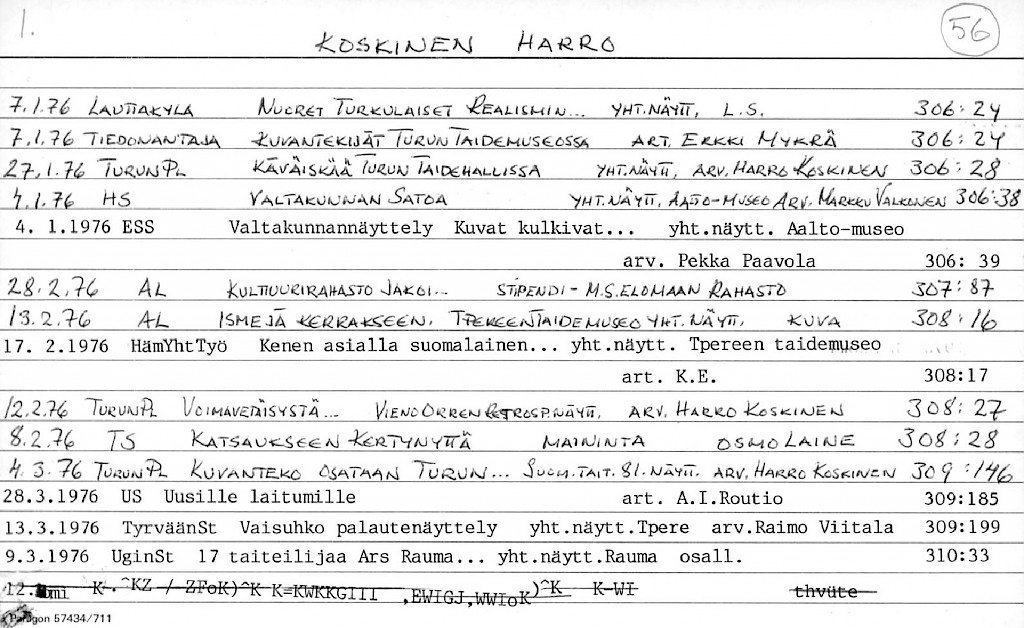 1.
56
KOSKINEN HARRO
7.1.76 LAUTTAKYLÄ NUORET TURKULAISET REALISMIN... YHT.NÄYTT, L.S. 306:24
7.1.76 TIEDONANTAJA KUVANTEKIJÄT TURUN TAIDEMUSEOSSA ART. ERKKI MYKRÄ 306:24
27.1.76 TURUN PL KÄVÄISKÄÄ TURUN TAIDEHALLISSA YHT.NÄYTT, ARV, HARRO KOSKINEN 306:28
4.1.76 HS VALTAKUNNAN SATOA YHT.NÄYTT, AALTO-MUSEO ARV. MARKKU VALKONEN 306:38
4. 1.1976 ESS Valtakunnannäyttely Kuvat kulkivat... yht.näytt. Aalto-museo
arv. Pekka Paavola 306: 39
28.2.76 AL KULTTUURIRAHASTO JAKOI... STIPENDI - M.S.ELOMAAN RAHASTO 307:87
13.2.76 AL ISMEJÄ KERRAKSEEN, TPEREEN TAIDEMUSEO YHT.NÄYTT, KUVA 308:16
17. 2.1976 HämYhtTyö Kenen asialla suomalainen... yht.näytt. Tpereen taidemuseo
art. K.E. 308:17
12.2.76 TURUN PL VOIMAVETÄISYSTÄ... VIENO ORREN RETROSP.NÄYTT, ARV, HARRO KOSKINEN 308:27
8.2.76 TS KATSAUKSEEN KERTYNYTTÄ MAININTA OSMO LAINE 308:28
4.3.76 TURUN PL KUVANTEKO OSATAAN TURUN... SUOM.TAIT. 81.NÄYTT. ARV, HARRO KOSKINEN 309:146
28.3.1976 US Uusille laitumille art. A.I.Routio 309:185
13.3.1976 TyrväänSt Vaisuhko palautenäyttely yht.näytt.Tpere arv.Raimo Viitala 309:199
9.3.1976 UginSt 17 taiteilijaa Ars Rauma... yht.näytt.Rauma osall. 310:33
12. K-WI thvüte
Paragon 57434/711